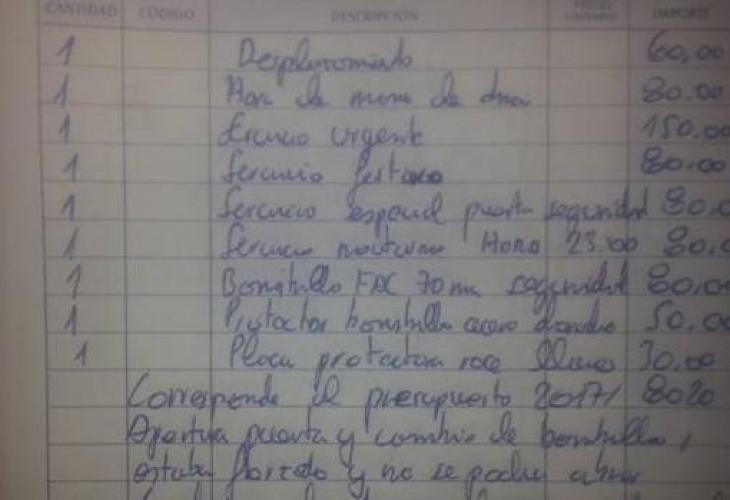 CANTIDAD CÓDIGO DESCRIPCIÓN PRECIO UNITARIO IMPORTE
1 Desplazamiento 60,00
1 Hora de mano de obra 80.00
1 Servicio urgente 150.00
1 Servicio festivo 80.00
1 Servicio especial puerta seguridad 80.0
1 Servicio nocturno Hora 23:00 80.0
1 Bombillo FAC 70 mm seguridad 80.00
1 Protector bombillo acero 50.00
1 Placa protectora llaves 30.00
Corresponde al presupuesto 2017/ 8020
Apertura puerta y cambio de bombillo,
estaba forzado y no se podia abrir